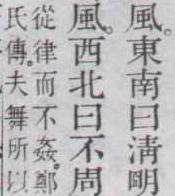 風。東南曰清明
風。西北曰不周
從律而不姦。鄭
氏傳。夫舞所以